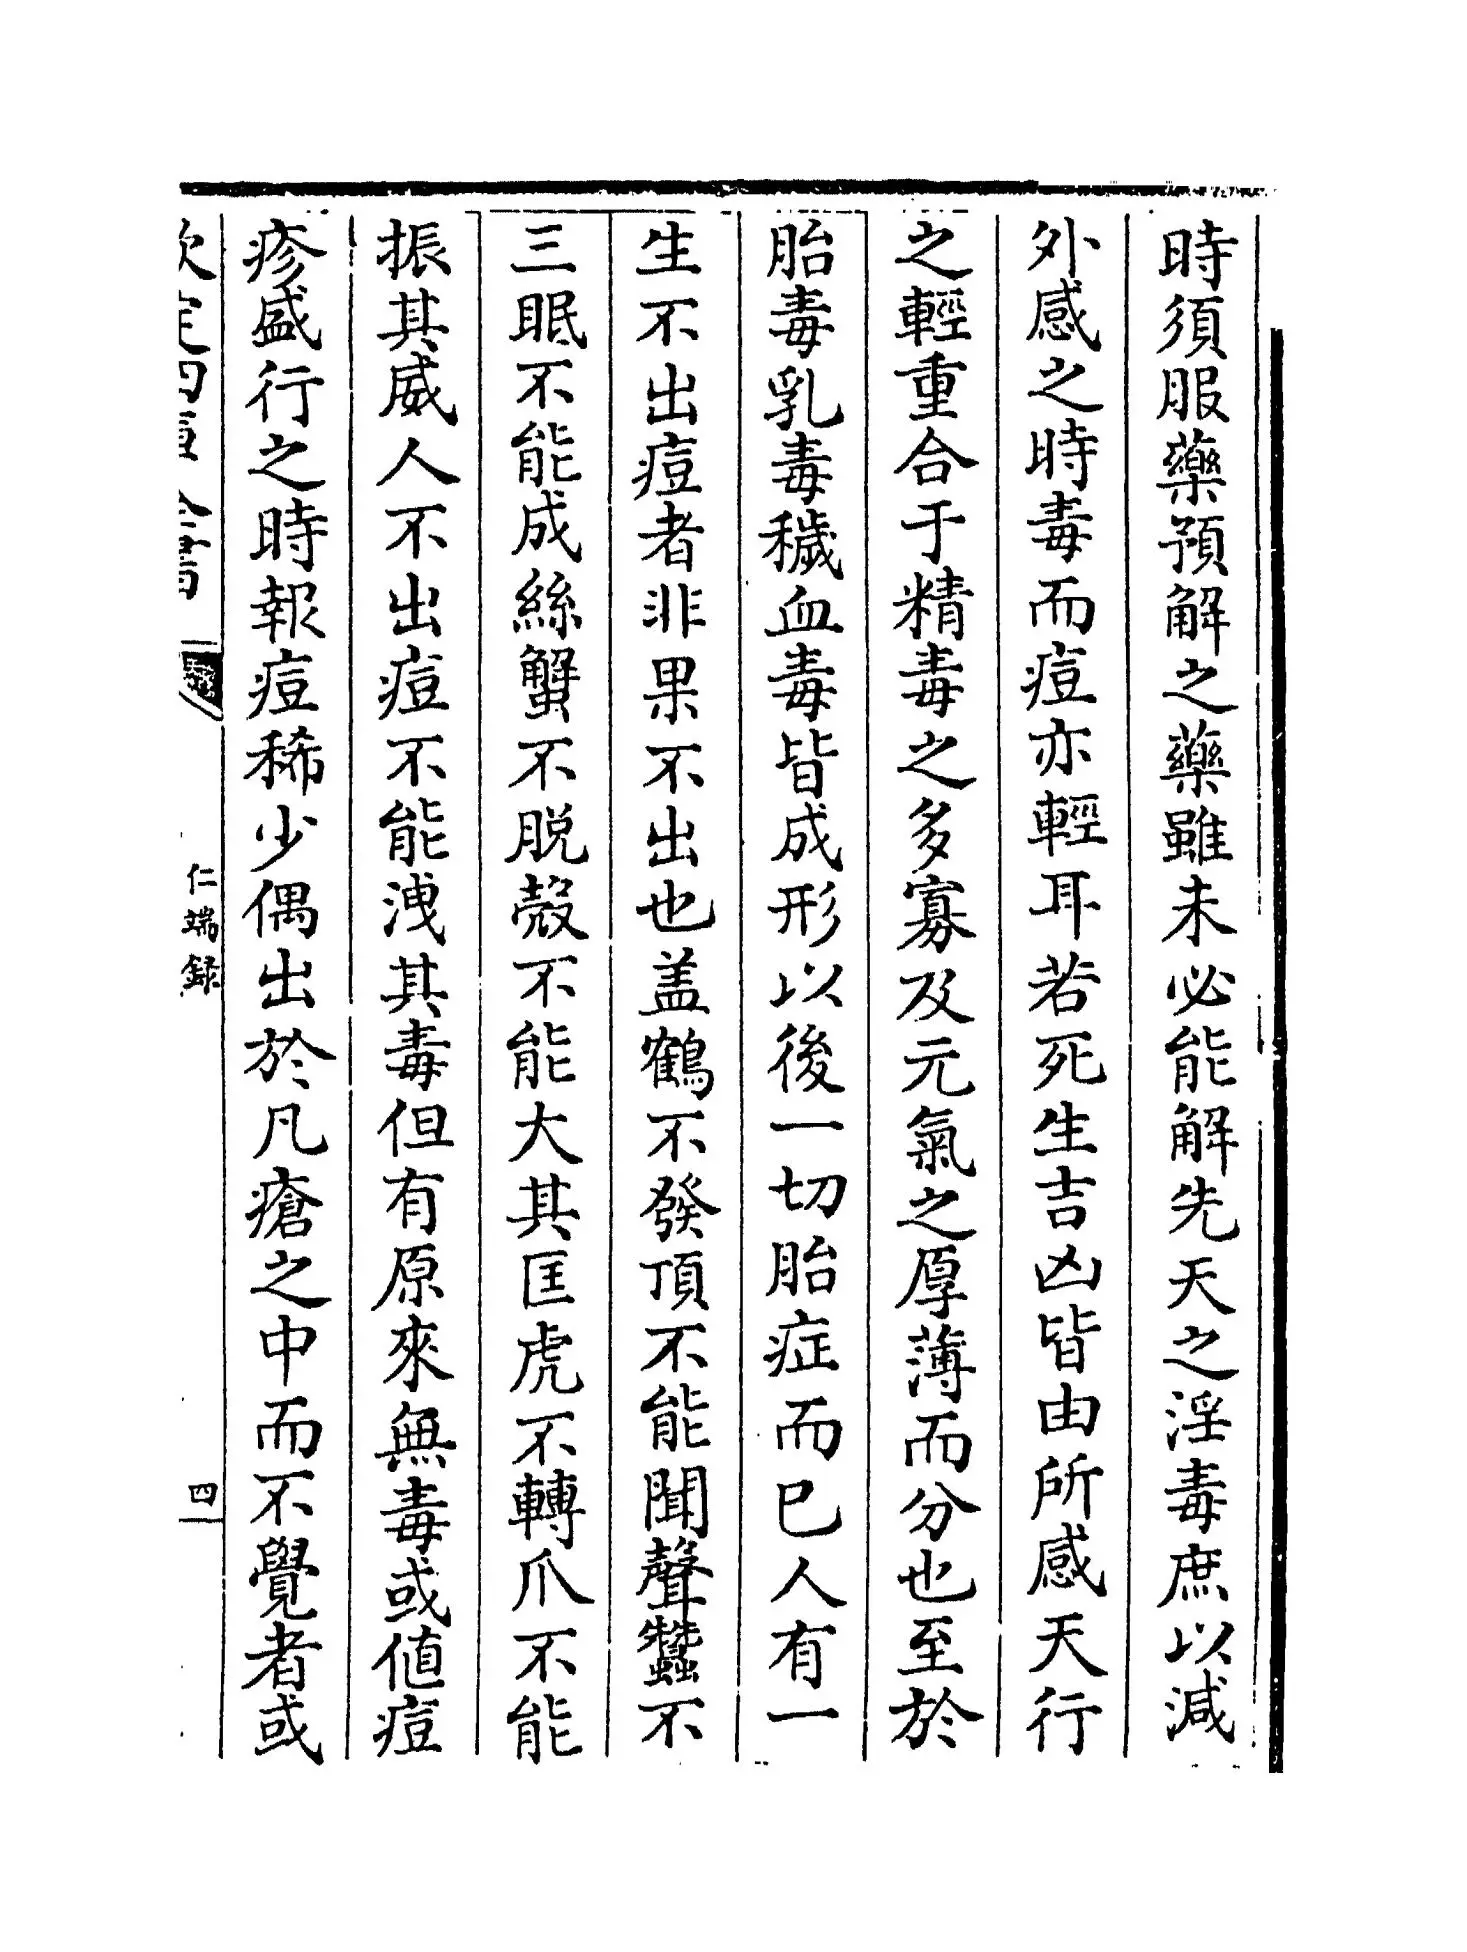 時須服藥預解之藥雖未必能解先天之淫毒庶以減
外感之時毒而痘亦輕耳若死生吉凶皆由所感天行
之輕重合于精毒之多寡及元氣之厚薄而分也至於
胎毒乳毒穢血毒皆成形以後一切胎症而已人有一
生不出痘者非果不出也盖鶴不發頂不能聞聲蠶不
三眠不能成絲蟹不脱殻不能大其匡虎不轉爪不能
振其威人不出痘不能洩其毒但有原來無毒或値痘
疹盛行之時報痘稀少偶出於凡瘡之中而不覺者或
欽定四庫全書
仁端録
四